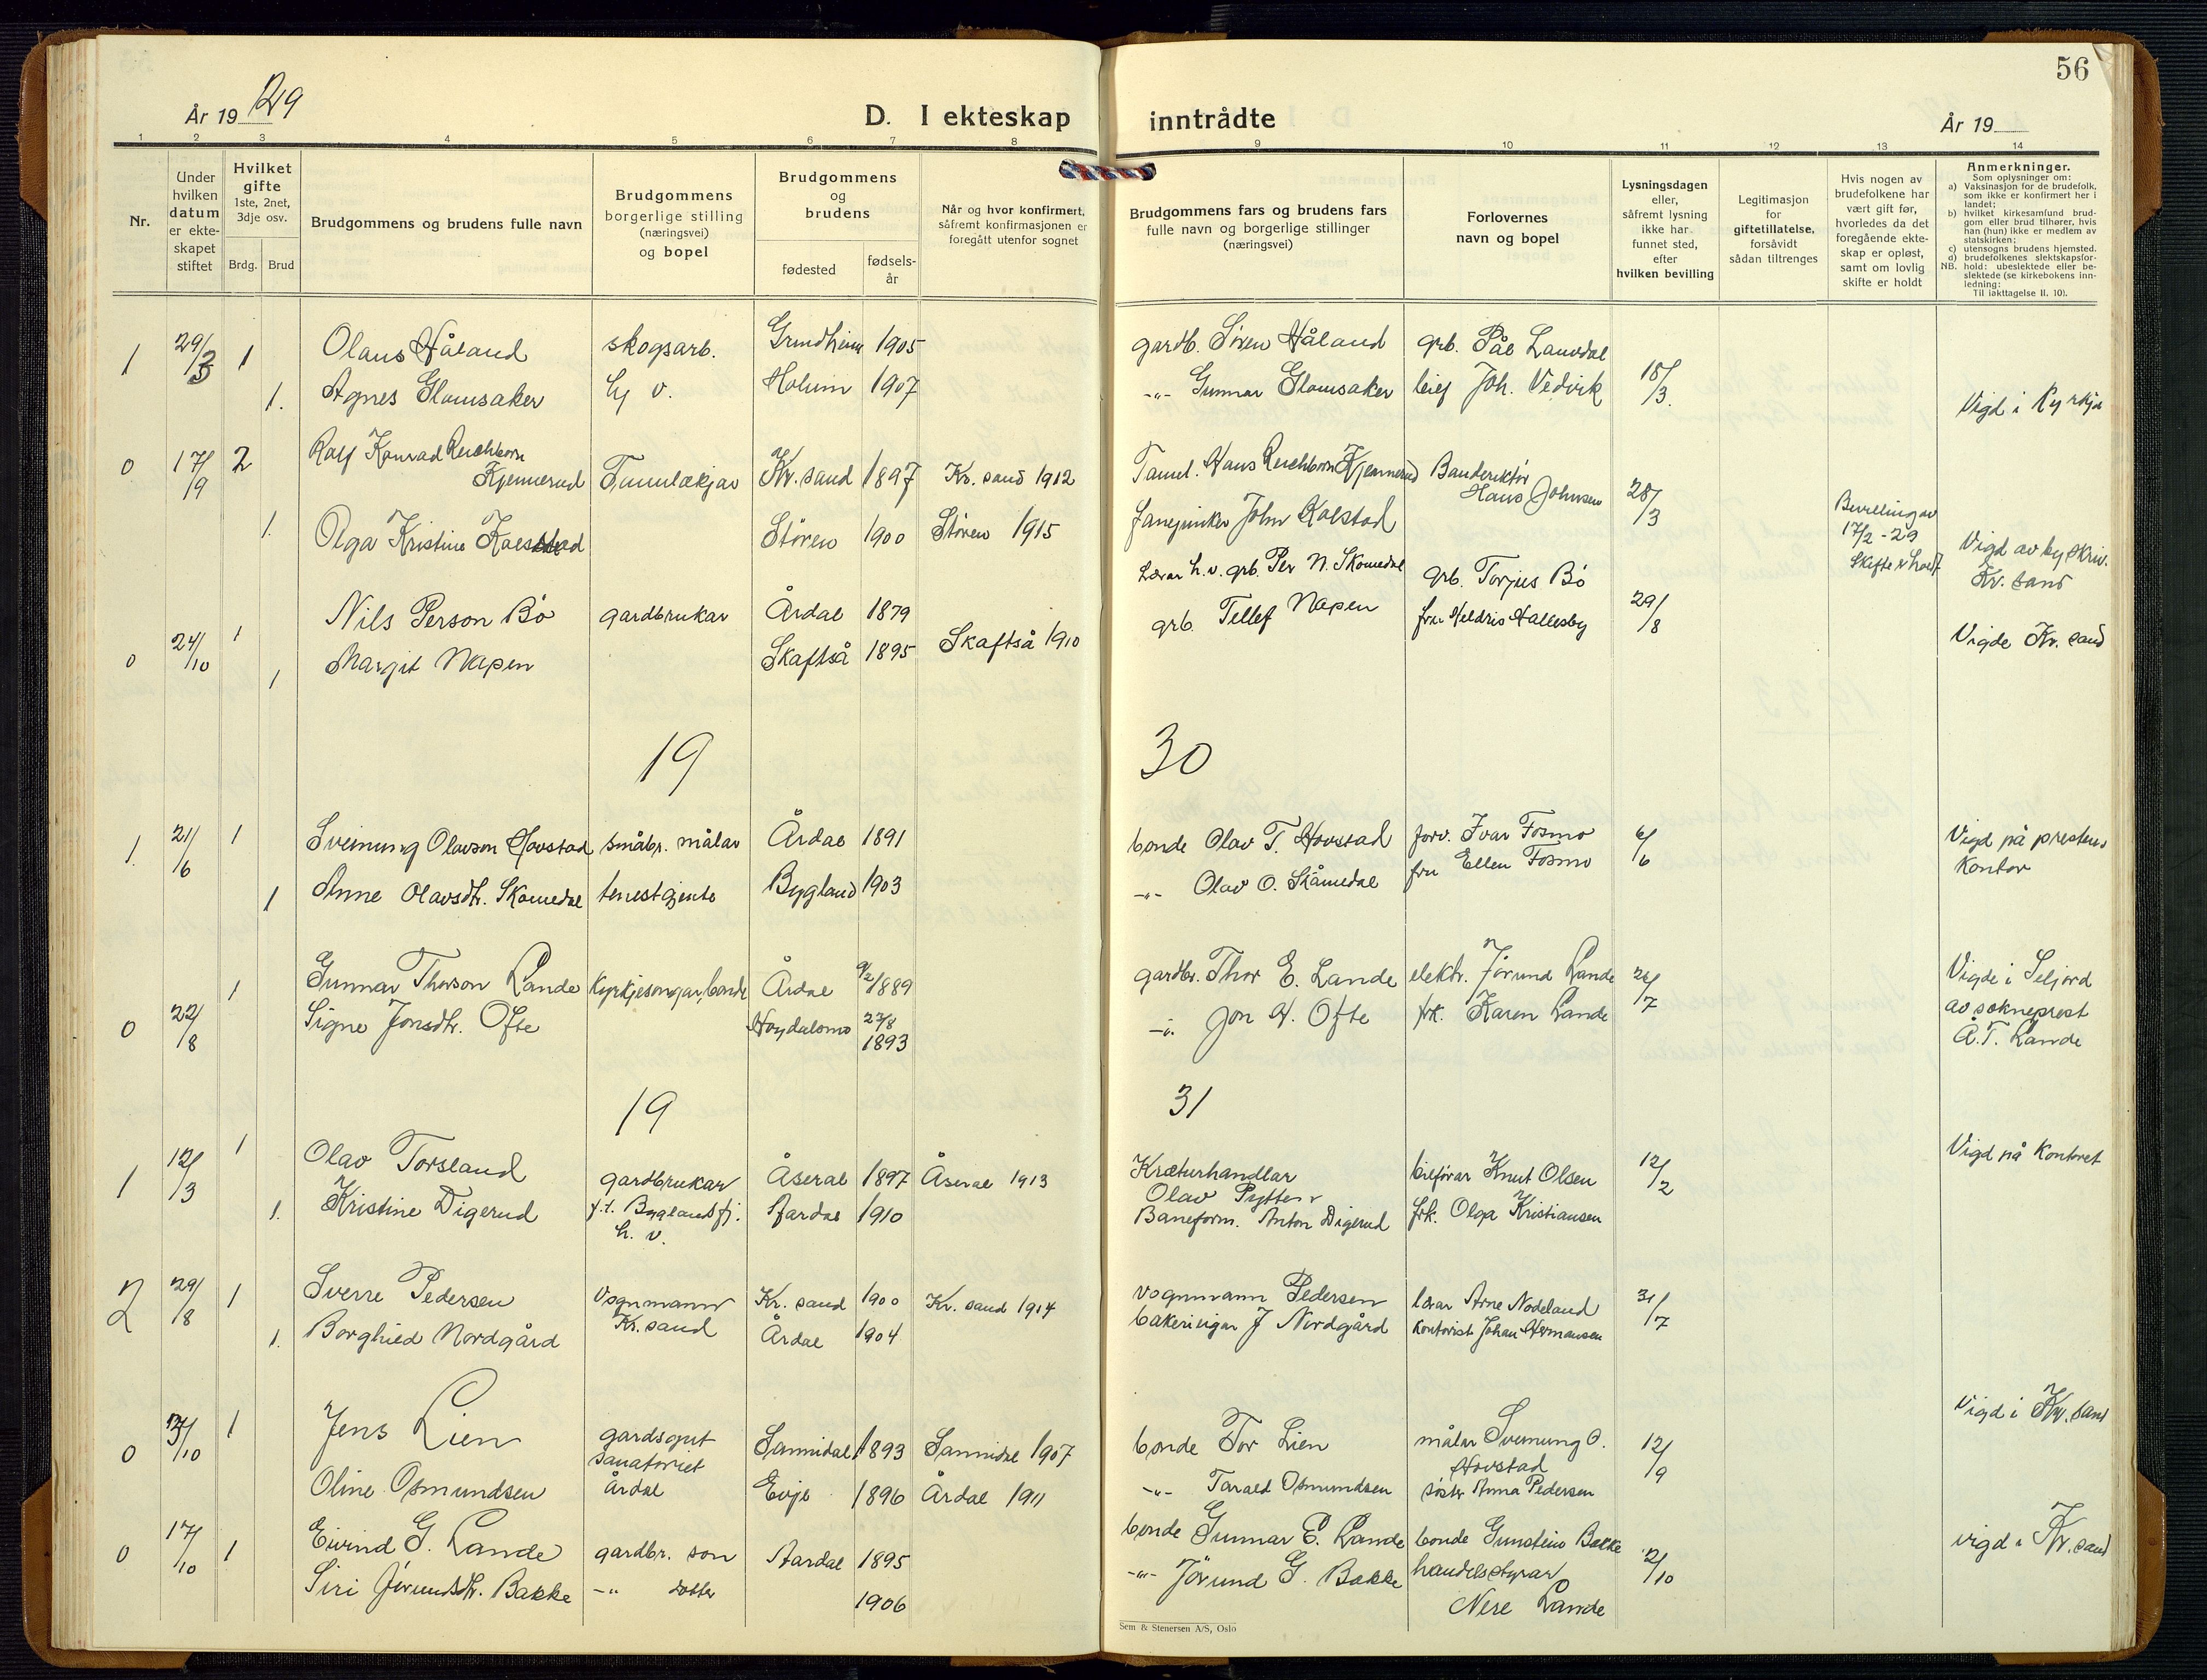 56
År 19 29
D. I ekteskap inntrådte
År 19
1 2 3 4 5 6 7 8 9 10 11 12 13 14
Nr.
Under hvilken datum er ekte-skapet stiftet
Hvilket gifte 1ste, 2net, 3dje osv.
Brdg. Brud
Brudgommens og brudens fulle navn
Brudgommens borgerlige stilling (næringsvei) og bopel
Brudgommens og brudens
fødested
fødsels-år
Når og hvor konfirmert, såfremt konfirmasjonen er foregått utenfor sognet
Brudgommens fars og brudens fars fulle navn og borgerlige stillinger (næringsvei)
Forlovernes navn og bopel
Lysningsdagen eller, såfremt lysning ikke har funnet sted, efter hvilken bevilling
Legitimasjon for giftetillatelse, forsåvidt sådan tiltrenges
Hvis nogen av brudefolkene har vært gift før, hvorledes da det foregående ekte-skap er opløst, samt om lovlig skifte er holdt
Anmerkninger.
Som oplysninger om:
a) Vaksinasjon for de brudefolk, som ikke er konfirmert her i landet;
b) hvilket kirkesamfund brud-gom eller brud tilhører, hvis han (hun) ikke er medlem av statskirken;
c) utensogns brudens hjemsted.
d) brudefolkenes slektskapsfor-hold: ubeslektede eller be-slektede (se kirkebokens inn-ledning:
NB. Til iakttagelse II. 10).
1 29/3 1 Olaus Håland skogsarb. Grindheim 1905 gardb. Søren Håland grb. Pål Lauvdal 18/3
1. Agnes Glomsaker hj v. Holum 1907 -"- Gunnar Glomsaker Joh. Vedvik Vigd i Kyrkja
0 17/9 2 Ralf Konrad Reichborn
Kjennerud Tannlækjar Kr. sand 1897 Kr. sand 1912 Tannl. Hans Reichborn Kjennerud Hans Johnsen 28/3
1. Olga Kristine Støren 1900 Støren 1915 fanejunker John Kolstad
17/2-29
Vigd av byskriv. Kr. sand
0 24/10 1 Nils Person Bö gardbrukar Årdal 1879 Lærar h.v. grb. Per N. Skomedal grb. Torjus Bö 29/8
1 Margit Napen Skaftså 1895 Skaftså 1910 grb. Tellef Napen Vigde Kr. sand
19 30
1. 21/6 1 Sveinung Olavson Hovstad småbr. målar Årdal 1891 bonde Olav T. Hovstad forv. Ivar Fosmo 6/6 Vigd på prestens
1 Anne Olavsdtr. Skomedal tenestgjente Bygland 1903 -"- Olav O. Skåmedal fru Ellen Fosmo kontor
0 22/8 1 Gunnar Thorson Lande Kyrkjesongar, bonde Årdal 9/2 1889 gardbr. Thor E. Lande elektr. Jörund Lande 26/7 Vigde i Seljord
Signe Jonsdtr. Ofte Høydalsmo 27/8 1893 -"- Jon H. Ofte frk. Karen Lande av sokneprest
Å. T. Lande
19 31
1 12/3 1 Olav Torsland gardbrukar Åseral 1897 Åseral 1913 Kræturhandlar bilförar Knut Olsen 12/2 Vigd på Kontoret
Olav Pytten
1. Kristine Digerud f. t. Byglandsfj. Aardal 1910 Baneform. Anton Digerud frk. Olga Kristiansen
h. v.
2 29/8 1 Sverre Pedersen Vognmann Kr. sand 1900 Kr. sand 1914 vognmann Pedersen lærar Arne Nodeland 31/7
1. Borghild Nordgård Kr. sand Årdal 1904 bakerieigar J Nordgård Kontorist Johan Hermansen
0 /10 1 Jens Lien gardsgut Sannidal 1893 Sannidal 1907 bonde Tor Lien målar Sveinung O. 12/9 Vigd i Kr. sand
sanatoriet Hovstad
Oline Osmundsen Årdal Evje 1896 Årdal 1911 -"- Tarald Osmundsen söster Anna Pedersen
0 17/10 1 Eivind G. Lande gardbr. son Aardal 1895 bonde Gunnar E. Lande bonde Gunstein Bakke 2/10 vigd i Kr. sand
Siri Jörundsdtr. Bakke -"- dotter 1906 -"- Jörund G. Bakke handelsstyrar
Nese Lande
Sem & Stenersen A/S, Oslo